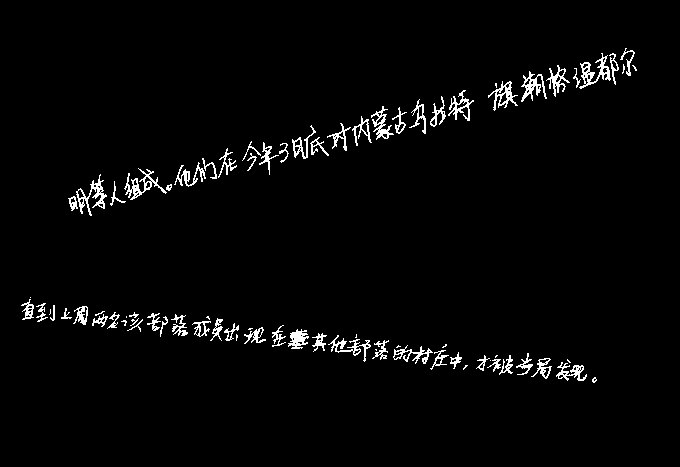 明等人组成。他们在今年3月底对内蒙古乌拉特 旗潮格温都尔
直到上周两名该部落成员出现在其他部落的村庄中,才被当局发现。